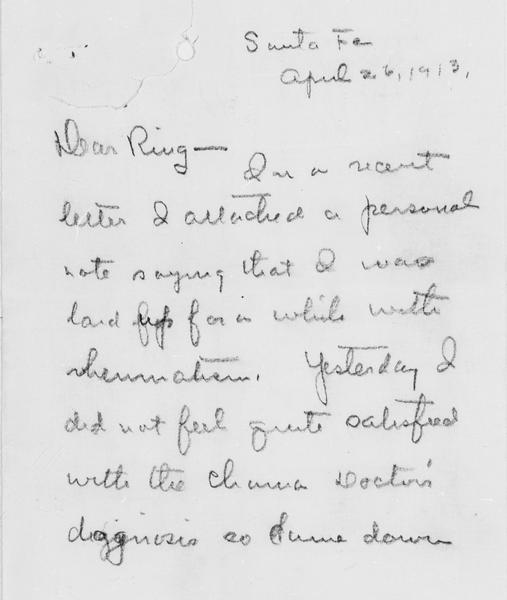 Santa Fe
April 26, 1913,
Dear Ring —
In a recent
letter I attached a personal
note saying that I was
laid up for a while with
rheumatism. Yesterday I
did not feel quite satisfied
with the Chama Doctor's
diagnosis so I came down